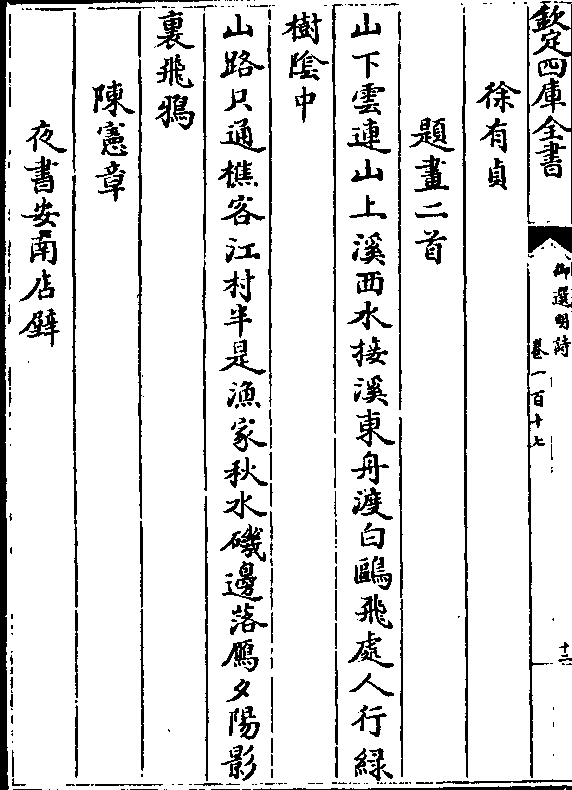 欽定四庫全書
御選明詩
卷一百十七
十二
徐有貞
題畫二首
山下雲連山上溪西水接溪東舟渡白鷗飛處人行綠
樹陰中
山路只通樵客江村半是漁家秋水磯邊落鴈夕陽影
裏飛鴉
陳憲章
夜書安南店壁